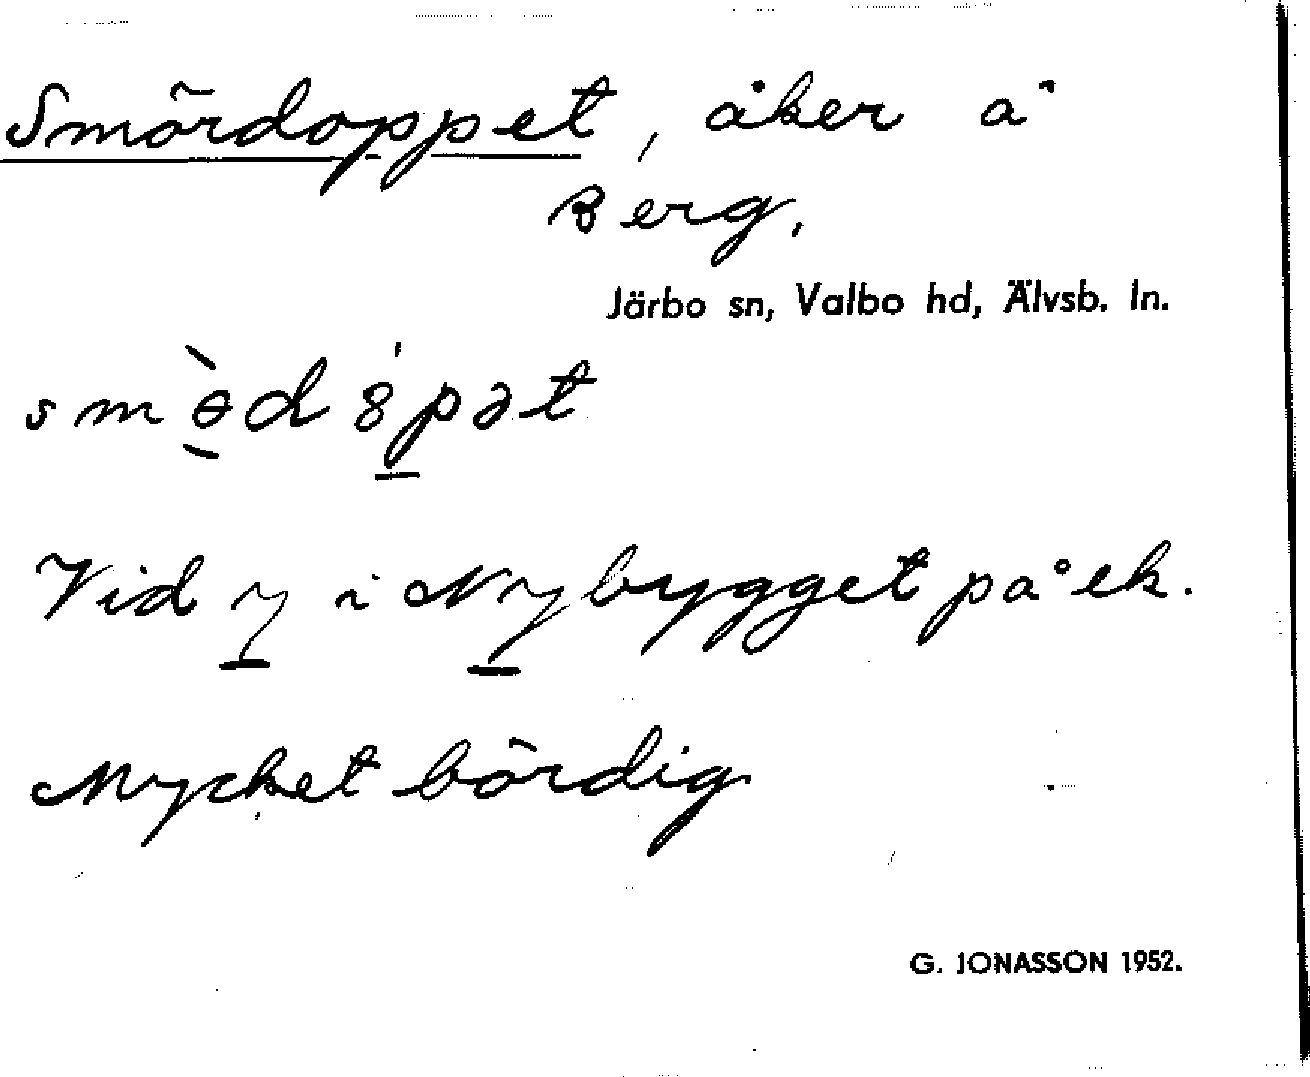 Smördoppet, åker å
Berg.
Järbo sn, Valbo hd, Älvsb. ln.
smɵ̀d 8́pət
Vid y i Nybygget på ek.
Mycket bördig
G. JONASSON 1952.